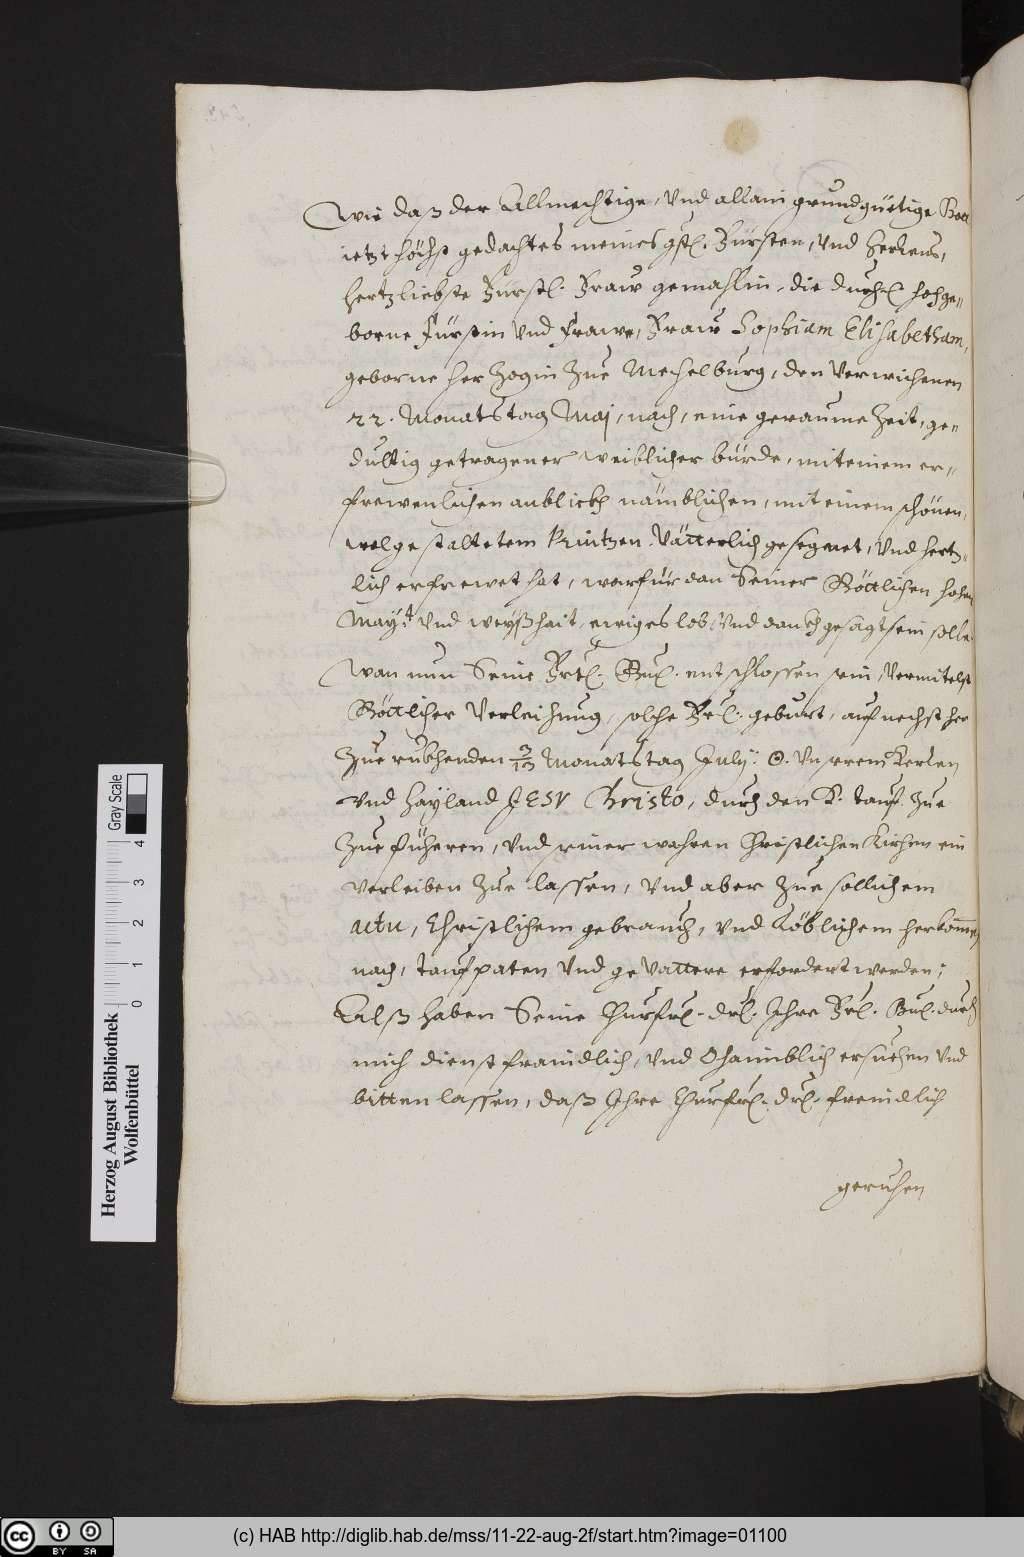 Wie daß der Allmechtige, Vnd allain grundgüetige Gott
ietzt höchst gedachtes meines gst. Fürsten, Vnd Herrens,
hertzliebste Fürstl. Fraw gemahlin, die durchl. hochge-
borne Fürstin Vnd Frawe, Fraw Sophiam Elisabetham,
geborne Herzogin Zue Mechelburg, den Verwichenen
22. Monatstag Maij, nach, eine geraume Zeit, ge-
dultig getragener weiblicher bürde, mit einem er-
frewenlichen anblickh nämblichen, mit einem schönen,
wolgestaltetem Printzen Vätterlich gesegnet, Vnd hertz-
lich erfrewet hat, warfür dan Seiner Göttlichen hohen
Mayt. Vnd weyßhait, ewiges lob, Vnd danckh gesagt sein solle.
Wan nun Seine Frtl. Gnl. entschlossen sein, Vermitelst
Göttlicher Verleihung, solche Frl. geburt, auf nechst her
Zue rukhenden 3/13 Monatstag July: ☉. Vnserem Herren
Vnd Hayland JESV Christo, durch den H. tauf Zue
Zue füheren, Vnd seiner wahren Christlichen Kirchen ein
verleiben Zue lassen, Vnd aber Zue sollichem
actu, Christlichem gebrauch, Vnd Löblichem herkommen
nach, tauf paten Vnd geVattere erfordert werden;
Alß haben Seine Churfrl. drl. Ihre Frl. Gnl. durch
mich dienstfraindlich, Vnd Ohaimblich ersuchen Vnd
bitten lassen, daß Ihre Churfrl. drl. freindlich
geruhen
Herzog August Bibliothek
Wolfenbüttel
0 1 2 3 4
Gray Scale
(c) HAB http://diglib.hab.de/mss/11-22-aug-2f/start.htm?image=01100
cc BY SA